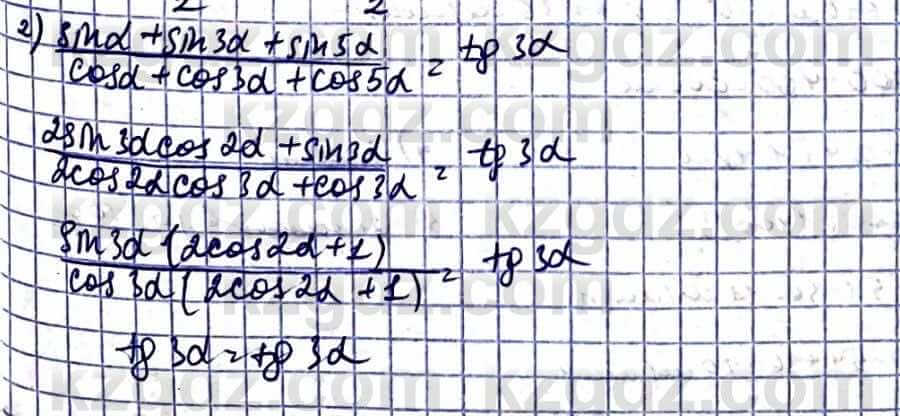 2) (sinα + sin 3α + sin 5α) / (cosα + cos 3α + cos 5α) = tg 3α
(2 sin 3α cos 2α + sin 3α) / (2 cos 2α cos 3α + cos 3α) = tg 3α
(sin 3α (2 cos 2α + 1)) / (cos 3α (2 cos 2α + 1)) = tg 3α
tg 3α = tg 3α
kzgdz.com